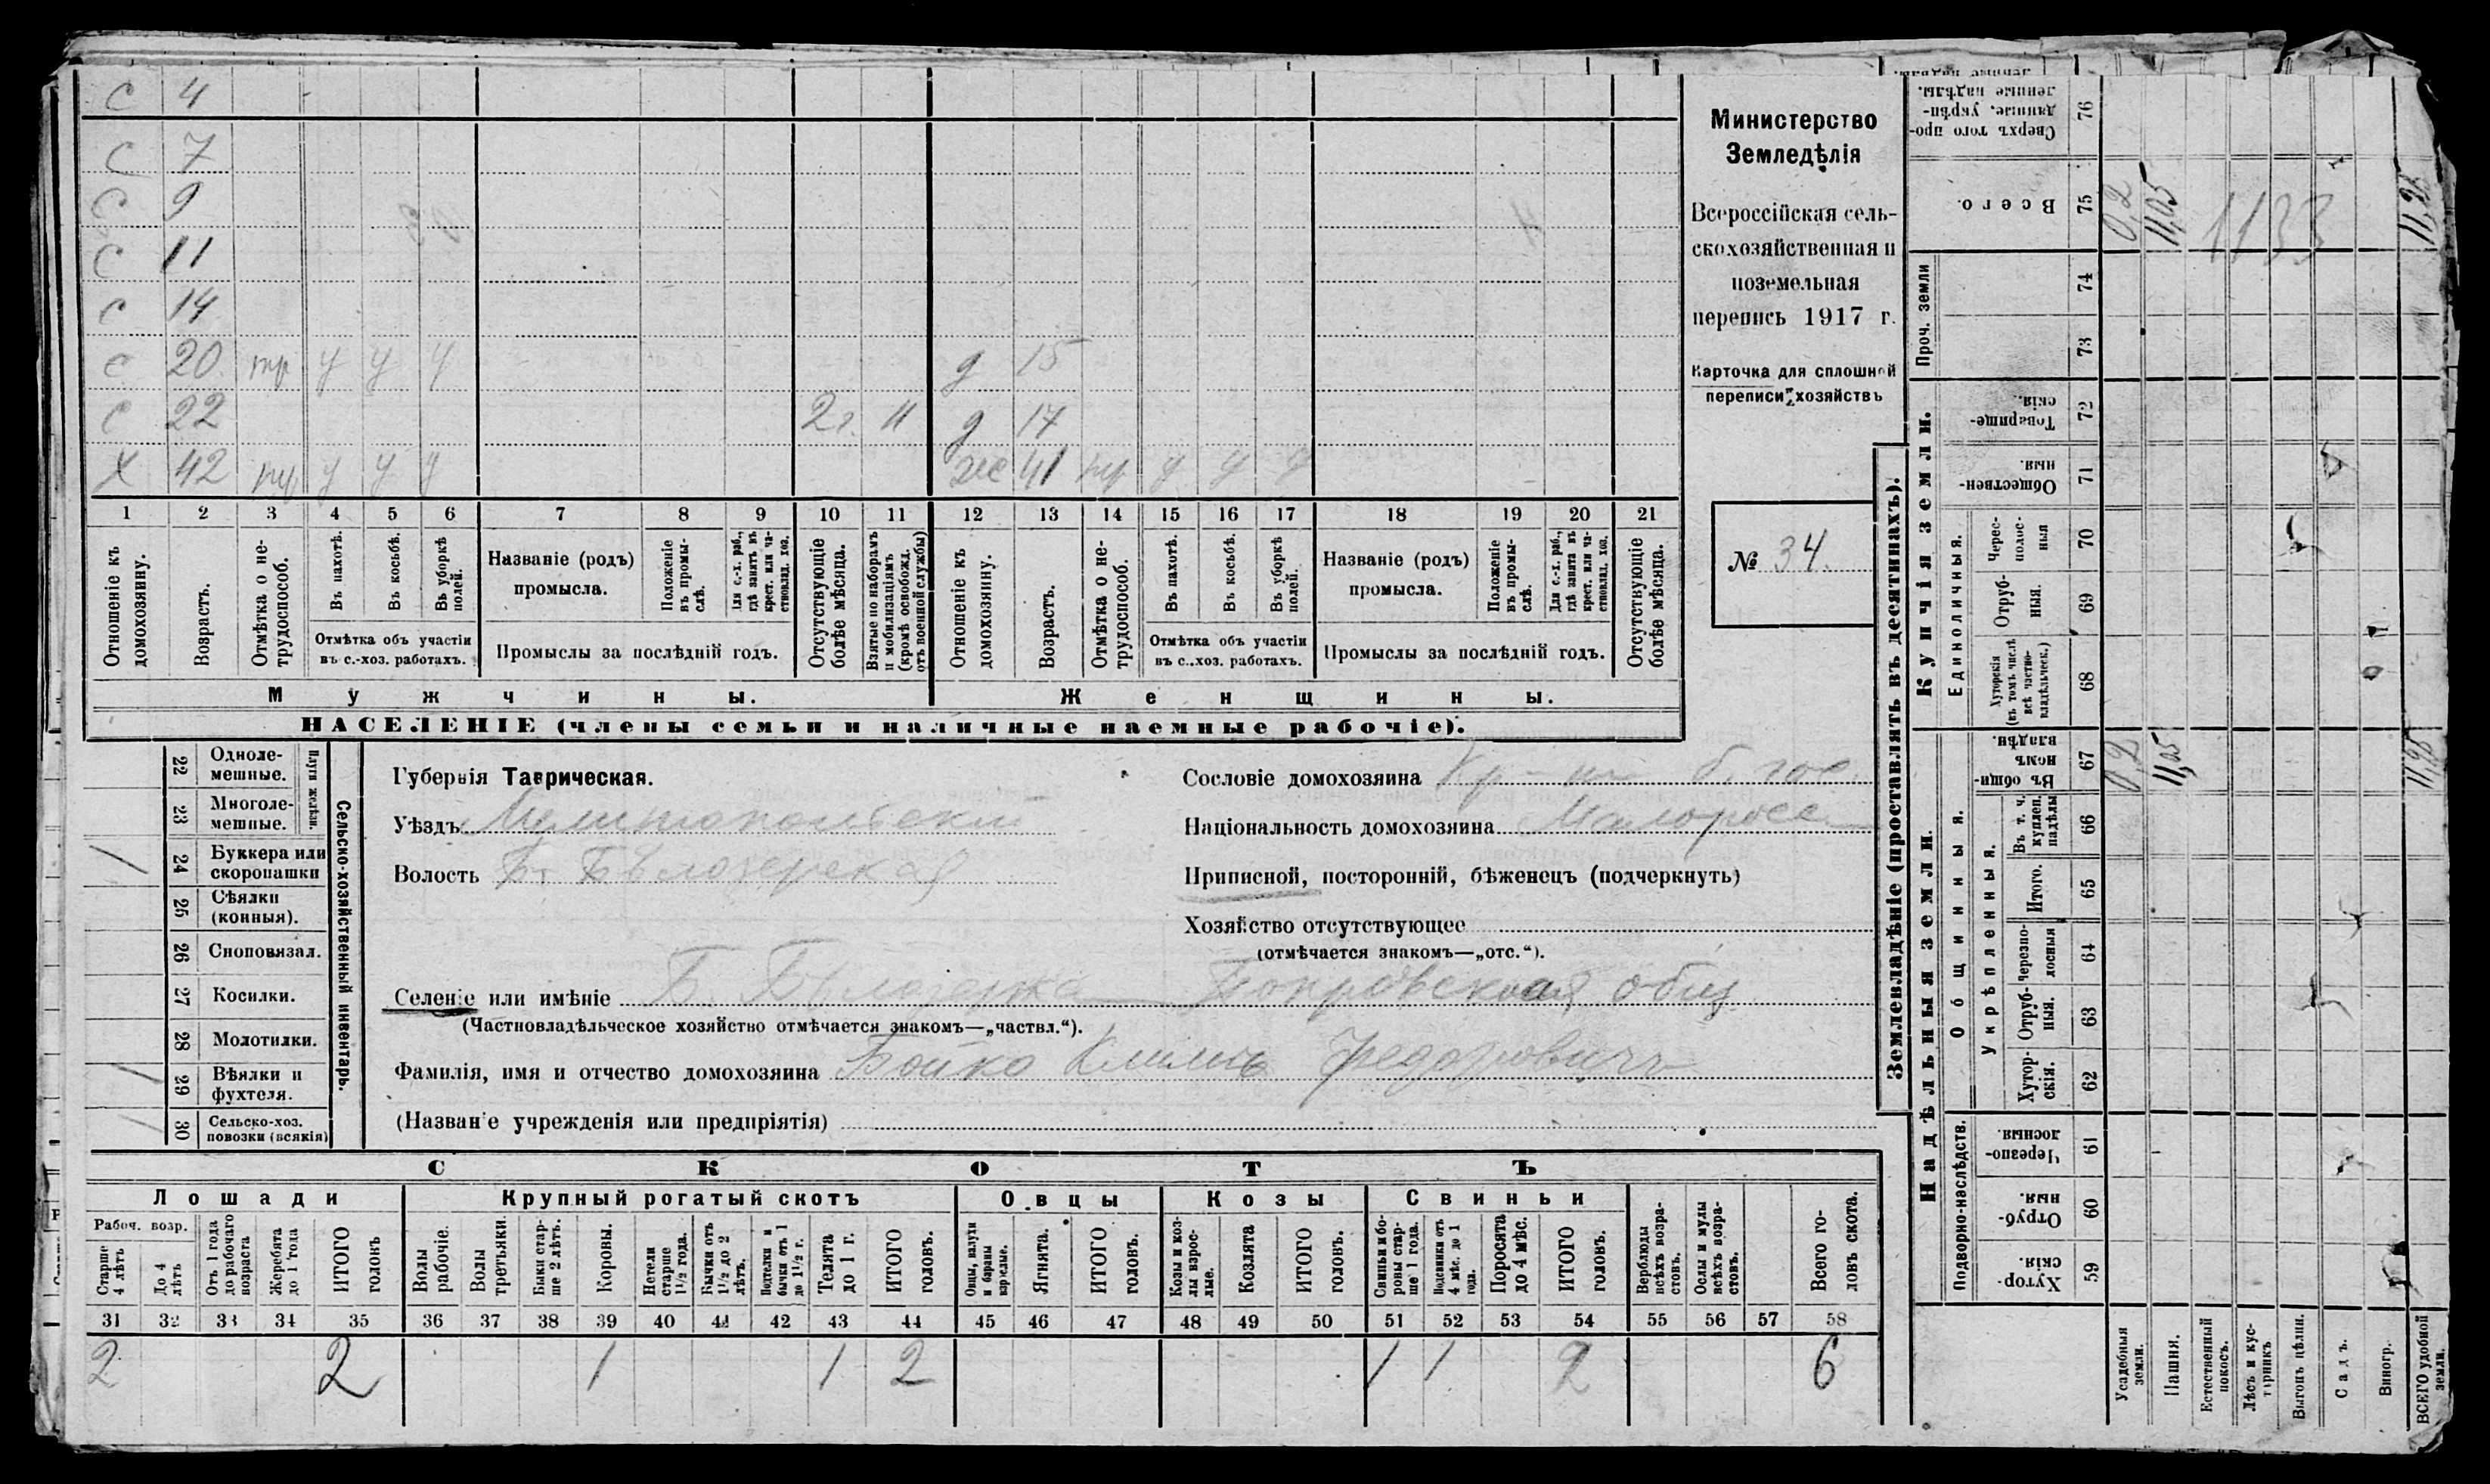 С 4
С 7
С 9
С 11
С 14
С 20 тр у у у д 15
С 22 2 г. 11 д 17
Х 42 тр у у у же 41 тр у у у
1 2 3 4 5 6 7 8 9 10 11 12 13 14 15 16 17 18 19 20 21
Отношеніе къ домохозяину.
Возрастъ.
Отмѣтка о нетрудоспособ.
Въ пахотѣ.
Въ косьбѣ.
Въ уборкѣ полей.
Отмѣтка объ участіи
въ с.-хоз. работахъ.
Названіе (родъ)
промысла.
Положеніе въ промыслѣ.
Для с.-х. раб., гдѣ занятъ въ крест. или частновлад. хоз.
Промыслы за послѣдній годъ.
Отсутствующіе болѣе мѣсяца.
Взятые по наборамъ и мобилизаціямъ (кромѣ освобожд. отъ военной службы)
Отношеніе къ домохозяину.
Возрастъ.
Отмѣтка о нетрудоспособ.
Въ пахотѣ.
Въ косьбѣ.
Въ уборкѣ полей.
Отмѣтка объ участіи
въ с.-хоз. работахъ.
Названіе (родъ)
промысла.
Положеніе въ промыслѣ.
Для с.-х. раб., гдѣ занята въ крест. или частновлад. хоз.
Промыслы за послѣдній годъ.
Отсутствующіе болѣе мѣсяца.
Мужчины. Женщины.
НАСЕЛЕНІЕ (члены семьи и наличные наемные рабочіе).
Министерство
Земледѣлія
Всероссійская сель-
скохозяйственная и
поземельная
перепись 1917 г.
Карточка для сплошной
переписи хозяйствъ
№ 34.
22 Одноле-
мешные.
23 Многоле-
мешные.
Плуги желѣзн.
/ 24 Буккера или
скоропашки
25 Сѣялки
(конныя).
26 Сноповязал.
27 Косилки.
28 Молотилки.
/ 29 Вѣялки и
фухтеля.
/ 30 Сельско-хоз.
повозки (всякія)
Сельско-хозяйственный инвентарь.
Губернія Таврическая.
Уѣздъ Мелитопольскій
Волость Б. Бѣлозерская
Сословіе домохозяина Кр-нъ б. гос
Національность домохозяина Малоросс
Приписной, посторонній, бѣженецъ (подчеркнуть)
Хозяйство отсутствующее
(отмѣчается знакомъ—„отс.“).
Селеніе или имѣніе Б. Бѣлозерка Покровская общ
(Частновладѣльческое хозяйство отмѣчается знакомъ—„частвл.“).
Фамилія, имя и отчество домохозяина Бойко Климъ Федоровичъ
(Названіе учрежденія или предпріятія)
СКОТЪ
Лошади Крупный рогатый скотъ Овцы Козы Свиньи
Рабоч. возр.
Старше 4 лѣтъ
До 4 лѣтъ
Отъ 1 года до рабочаго возраста
Жеребята до 1 года
ИТОГО головъ
Волы рабочіе.
Волы третьяки.
Быки старше 2 лѣтъ.
Коровы.
Нетели старше 1½ года.
Бычки отъ 1½ до 2 лѣтъ.
Подтелки и бычки отъ 1 до 1½ г.
Телята до 1 г.
ИТОГО головъ.
Овцы, валухи и бараны взрослые.
Ягнята.
ИТОГО головъ.
Козы и козлы взрослые.
Козлята
ИТОГО головъ.
Свиньи и боровы старше 1 года.
Подсвинки отъ 4 мѣс. до 1 года.
Поросята до 4 мѣс.
ИТОГО головъ.
Верблюды всѣхъ возрастовъ.
Ослы и мулы всѣхъ возрастовъ.
Всего головъ скота.
31 32 33 34 35 36 37 38 39 40 41 42 43 44 45 46 47 48 49 50 51 52 53 54 55 56 57 58
2 2 1 1 2 1 1 2 6
Землевладѣніе (проставлять въ десятинахъ).
Купчія земли.
Надѣльныя земли.
Проч. земли
Единоличныя.
Общинныя.
Укрѣпленныя.
Подворно-наслѣдств.
Сверхъ того проданные, укрѣпленные надѣлы. 76
Всего. 75 0,2 11,05 1133 11,25
74
73
Товарищескія. 72
Общественныя. 71
Чересполосныя 70
Отрубныя. 69
Хуторскія (въ томъ числѣ всѣ частновладѣльческ.) 68
Въ общинномъ владѣн. 67 0,2 11,05 11,25
Въ т. ч. куплен. надѣлы 66
Итого. 65
Черезполосныя 64
Отрубныя. 63
Хуторскія. 62
Черезполосныя. 61
Отрубныя. 60
Хуторскія. 59
Усадебныя земли.
Пашня.
Естественный покосъ.
Лѣсъ и кустарникъ
Выгонъ цѣлин.
Садъ.
Виногр.
ВСЕГО удобной земли.